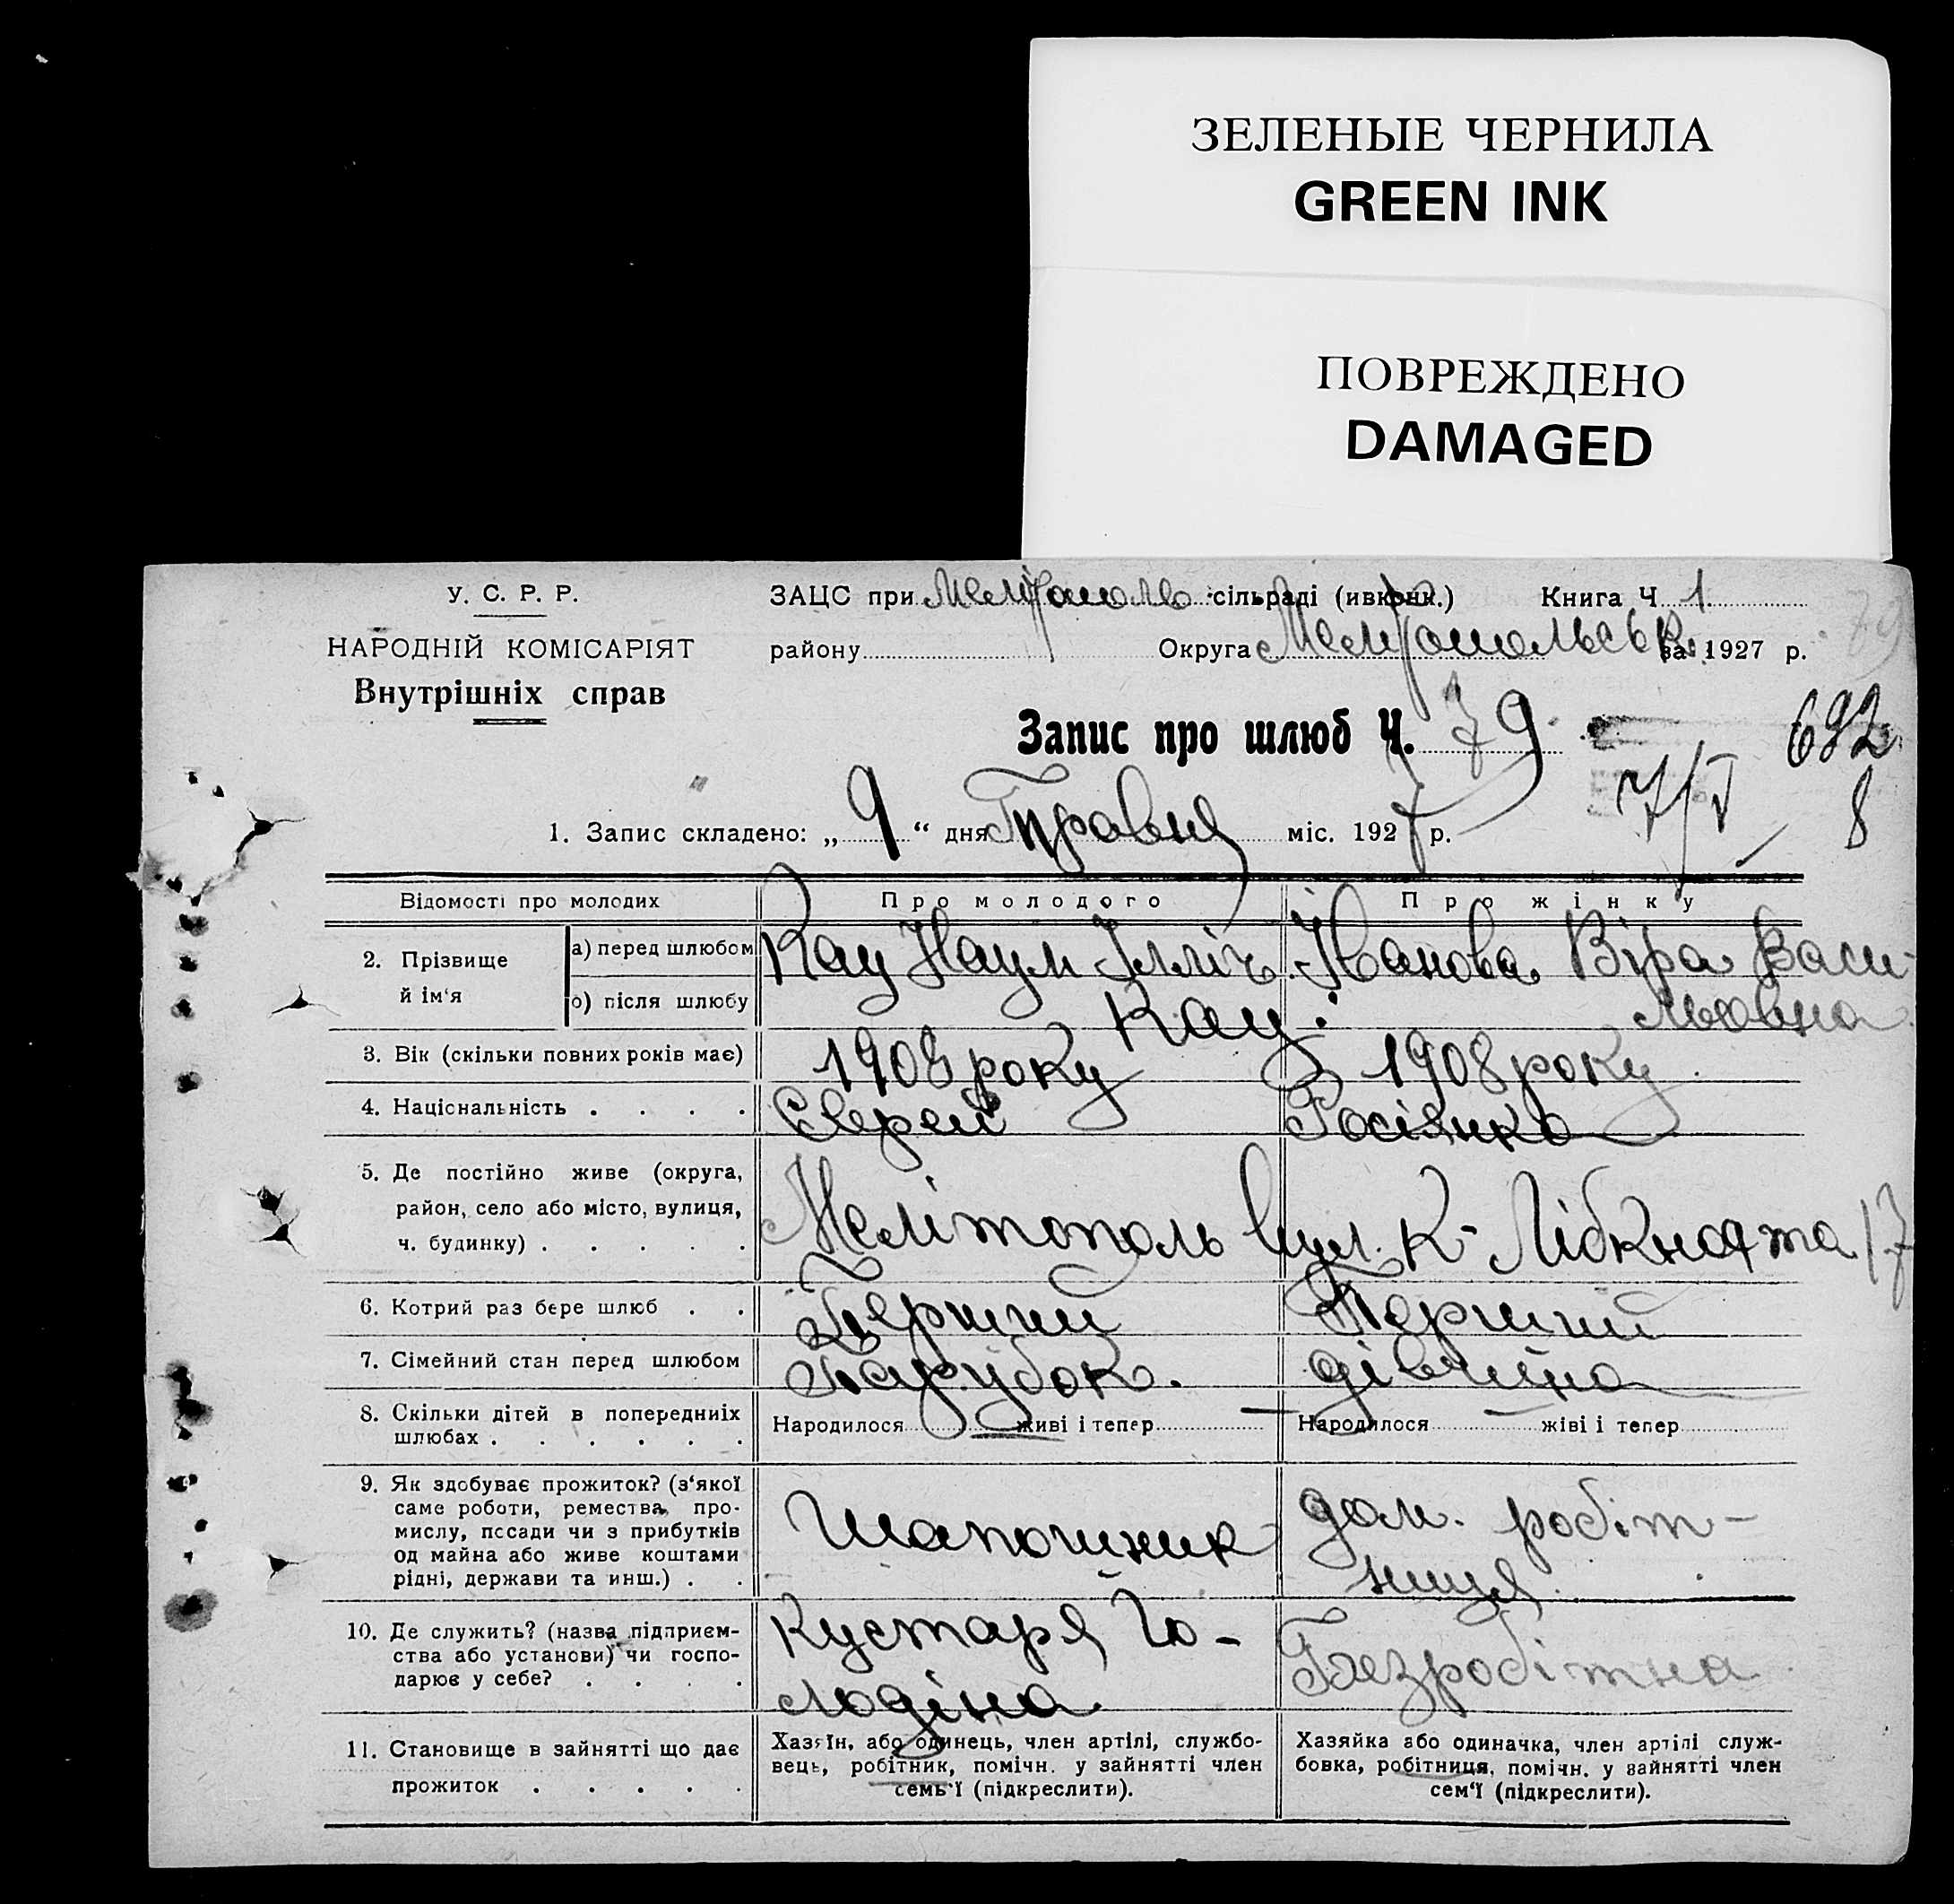 ЗЕЛЕНЫЕ ЧЕРНИЛА
GREEN INK
ПОВРЕЖДЕНО
DAMAGED
У. С. Р. Р.
НАРОДНІЙ КОМІСАРІЯТ
Внутрішніх справ
ЗАЦС при сільраді (ивкфнк.) Книга Ч. 1
району Округа за 1927 р.
79
Запис про шлюб Ч. 79
692
7/V 8
1. Запис складено: „ 9 “ дня Травня міс. 1927 р.
Відомості про молодих Про молодого Про жінку
2. Прізвище й ім‘я
а) перед шлюбом Кац Наум Ілліч. Іванова Віра Васи-
льовна
о) після шлюбу Кац
3. Вік (скільки повних років має) 1903 року 1908 року
4. Національність . . . . Єврей Росіянка
5. Де постійно живе (округа,
район, село або місто, вулиця,
ч. будинку) . . . . .
Мелітополь вул. К-Лібкнехта 17
6. Котрий раз бере шлюб . . Перший Перший
7. Сімейний стан перед шлюбом Парубок. дівчина
8. Скільки дітей в попередниіх
шлюбах . . . . . .
Народилося живі і тепер Народилося жіві і тепер
9. Як здобуває прожиток? (з‘якої
саме роботи, ремества, про-
мислу, посади чи з прибутків
од майна або живе коштами
рідні, держави та инш.) . .
Шапошник
дом. робіт-
ниця.
10. Де служить? (назва підприєм-
ства або установи) чи госпо-
дарює у себе? . . . .
Кустаря
Безробітна
11. Становище в зайнятті що дає
прожиток . . . . .
Хазяїн, або одинець, член артілі, службо-
вець, робітник, помічн. у зайнятті член
семь‘ї (підкреслити).
Хазяйка або одиначка, член артілі служ-
бовка, робітниця, помічн. у зайнятті член
сем‘ї (підкреслити).